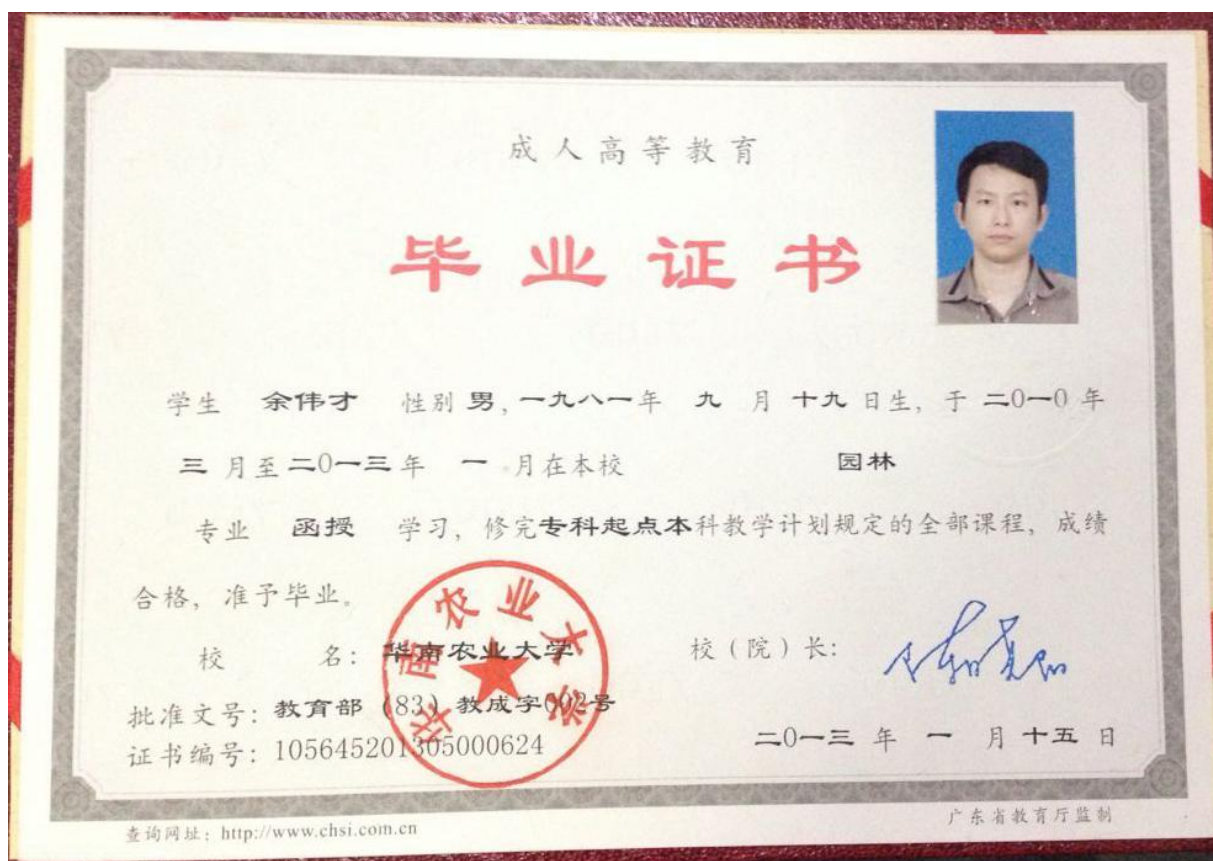 成人高等教育
毕业证书
学生 余伟才 性别 男, 一九八一年 九 月 十九 日生, 于 二0一0 年
三 月至 二0一三 年 一 月在本校 园林
专业 函授 学习, 修完专科起点本科教学计划规定的全部课程, 成绩
合格, 准予毕业。
华南农业大学
校 名: 华南农业大学 校(院)长:
批准文号: 教育部 (83) 教成字002号
证书编号: 105645201305000624 二0一三 年 一 月 十五 日
查询网址: http://www.chsi.com.cn 广东省教育厅监制